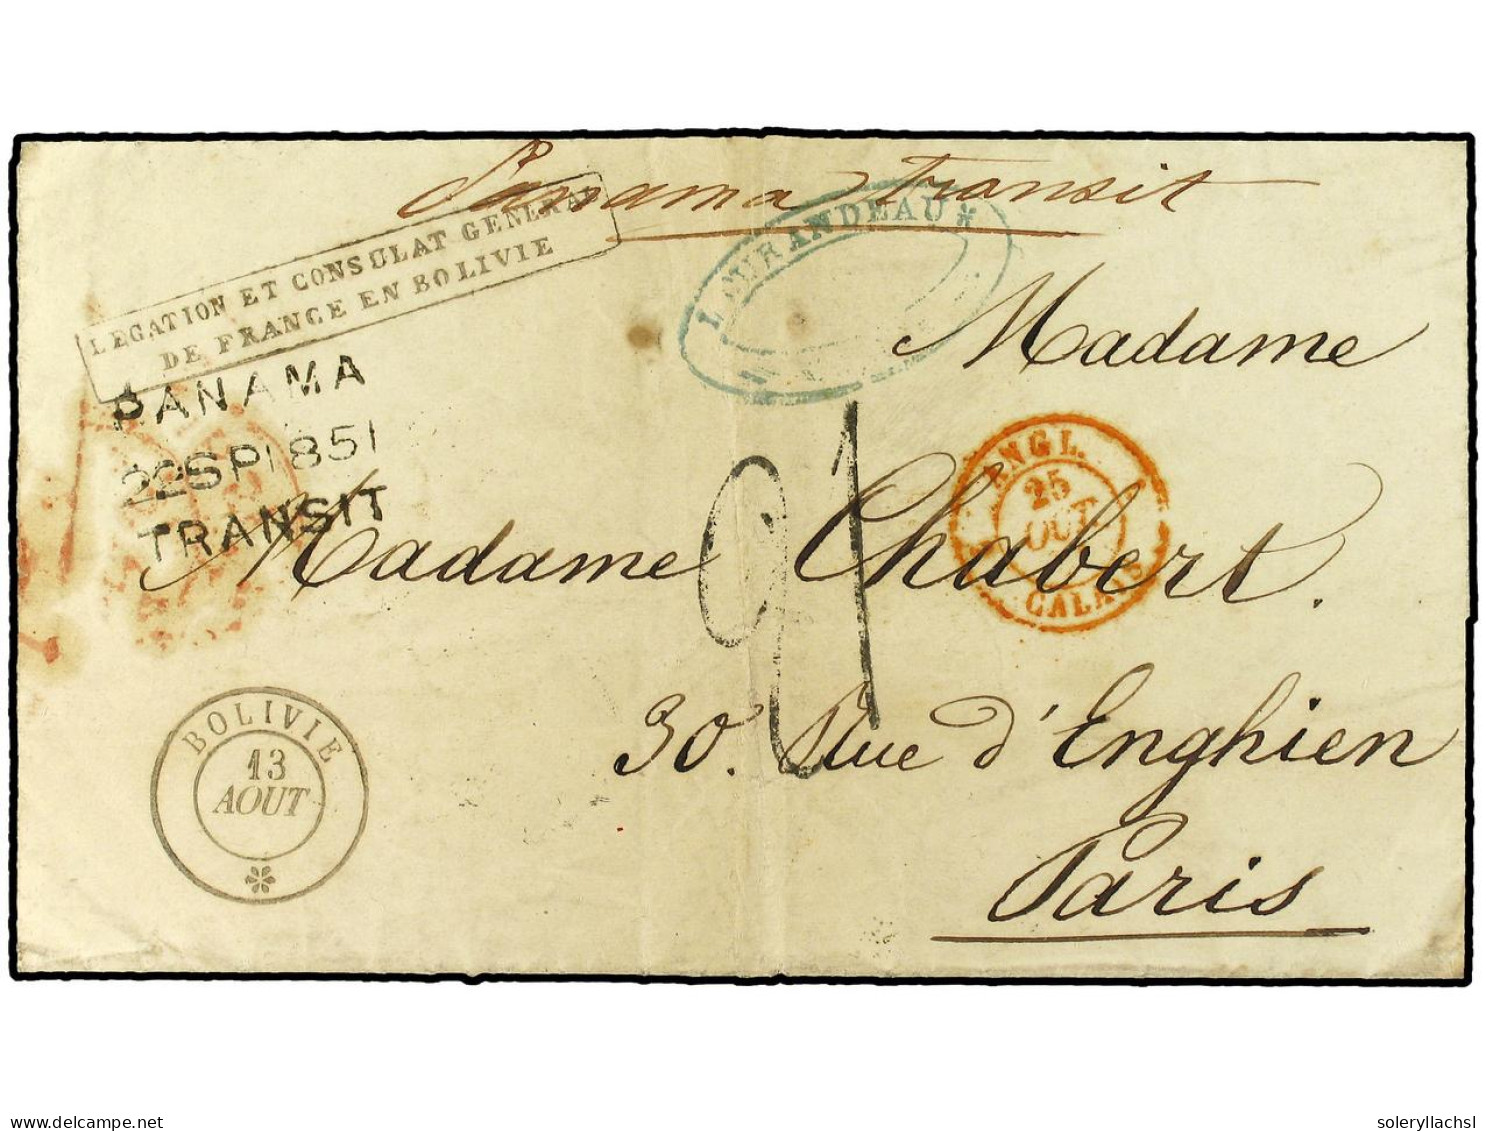 Panama transit
LEGATION ET CONSULAT GENERAL
DE FRANCE EN BOLIVIE
LOURANDEAU *
PANAMA
22SP1851
TRANSIT
Madame
Madame Chabert.
ANGL.
25
OUT
CALAIS
21
30. Rue d'Enghien
Paris
BOLIVIE
13
AOUT
*
delcampe.net
soleryllachsl